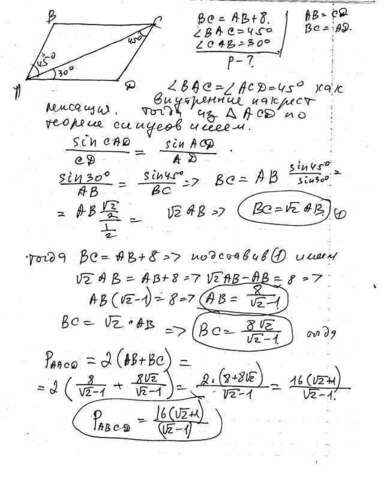 B C
45°
45°
30°
A D
BC = AB + 8. AB = CD
∠BAC = 45° BC = AD.
∠CAD = 30°
P - ?
∠BAC = ∠ACD = 45° как
внутренние накрест
лежащие. Тогда из △ACD по
теореме синусов имеем.
sin CAD / CD = sin ACD / AD
sin 30° / AB = sin 45° / BC => BC = AB sin 45° / sin 30° =
= AB (√2/2) / (1/2) = √2 AB => BC = √2 AB, (1)
тогда BC = AB + 8 => подставив (1) имеем
√2 AB = AB + 8 => √2 AB - AB = 8 =>
AB (√2 - 1) = 8 => AB = 8 / (√2 - 1)
BC = √2 · AB => BC = 8√2 / (√2 - 1) тогда
P ABCD = 2 (AB + BC) =
= 2 (8 / (√2 - 1) + 8√2 / (√2 - 1)) = 2 · (8 + 8√2) / (√2 - 1) = 16 (√2 + 1) / (√2 - 1).
P ABCD = 16 (√2 + 1) / (√2 - 1)